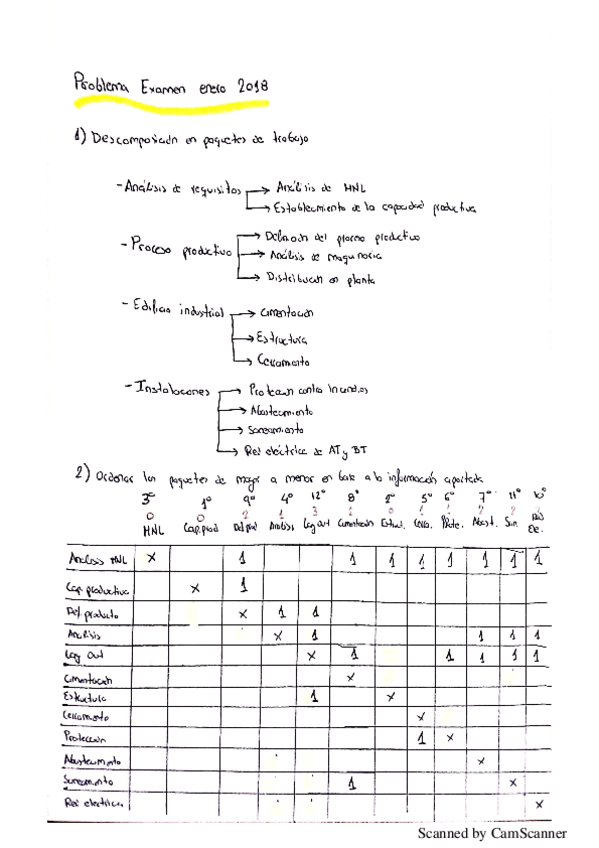 Problema Examen enero 2018
1) Descomposición en paquetes de trabajo
- Análisis de requisitos → Análisis de MNL
→ Establecimiento de la capacidad productiva
- Proceso productivo → Definición del proceso productivo
→ Análisis de maquinaria
→ Distribución en planta
- Edificio industrial → Cimentación
→ Estructura
→ Cerramiento
- Instalaciones → Protección contra Incendios
→ Abastecimiento
→ Saneamiento
→ Red eléctrica de AT y BT
2) Ordenar los paquetes de mayor a menor en base a la información aportada
3º 1º 9º 4º 12º 8º 2º 5º 6º 7º 11º 10º
0 0 2 1 3
MNL Cap. prod Def. prod Análisis Lay Out Cimentación Estruct. Cerra. Prote. Abast. San. Red Ele.
Análisis MNL x 1 1 1 1 1 1 1 1
Cap. productiva x 1
Def. producto x 1 1
Análisis x 1 1 1 1
Lay Out x 1 1 1 1 1
Cimentación x
Estructura 1 x
Cerramiento x
Protección 1 x
Abastecimiento x
Saneamiento 1 x
Red electrica x
Scanned by CamScanner